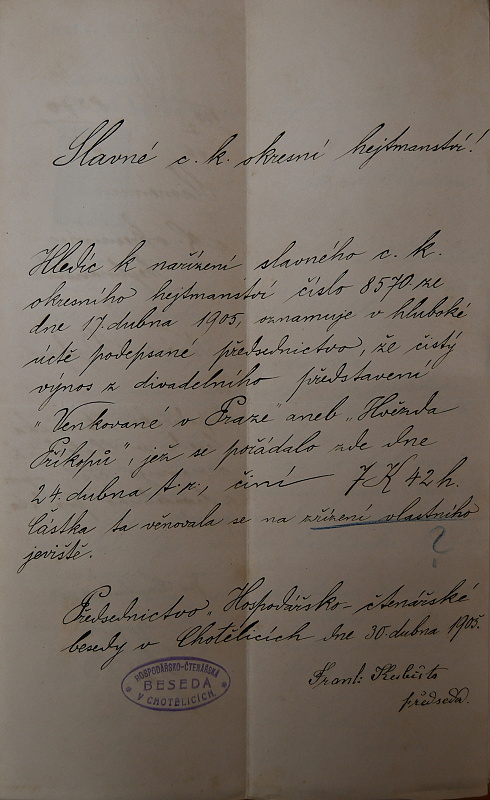 Slavné c. k. okresní hejtmanství!
Hledíc k nařízení slavného c. k.
okresního hejtmanství číslo 8570 ze
dne 17. dubna 1905, oznamuje v hluboké
úctě podepsané předsednictvo, že čistý
výnos z divadelního představení
"Venkované v Praze" aneb "Hvězda
Příkopů", jež se pořádalo zde dne
24. dubna t. r., činí 7 K 42 h.
Částka ta věnovala se na zřízení vlastního
jeviště.
?
Předsednictvo "Hospodářsko-čtenářské
besedy v Chotělicích dne 30. dubna 1905.
HOSPODÁŘSKO-ČTENÁŘSKÁ
BESEDA
V CHOTĚLICÍCH.
Frant.
předseda.